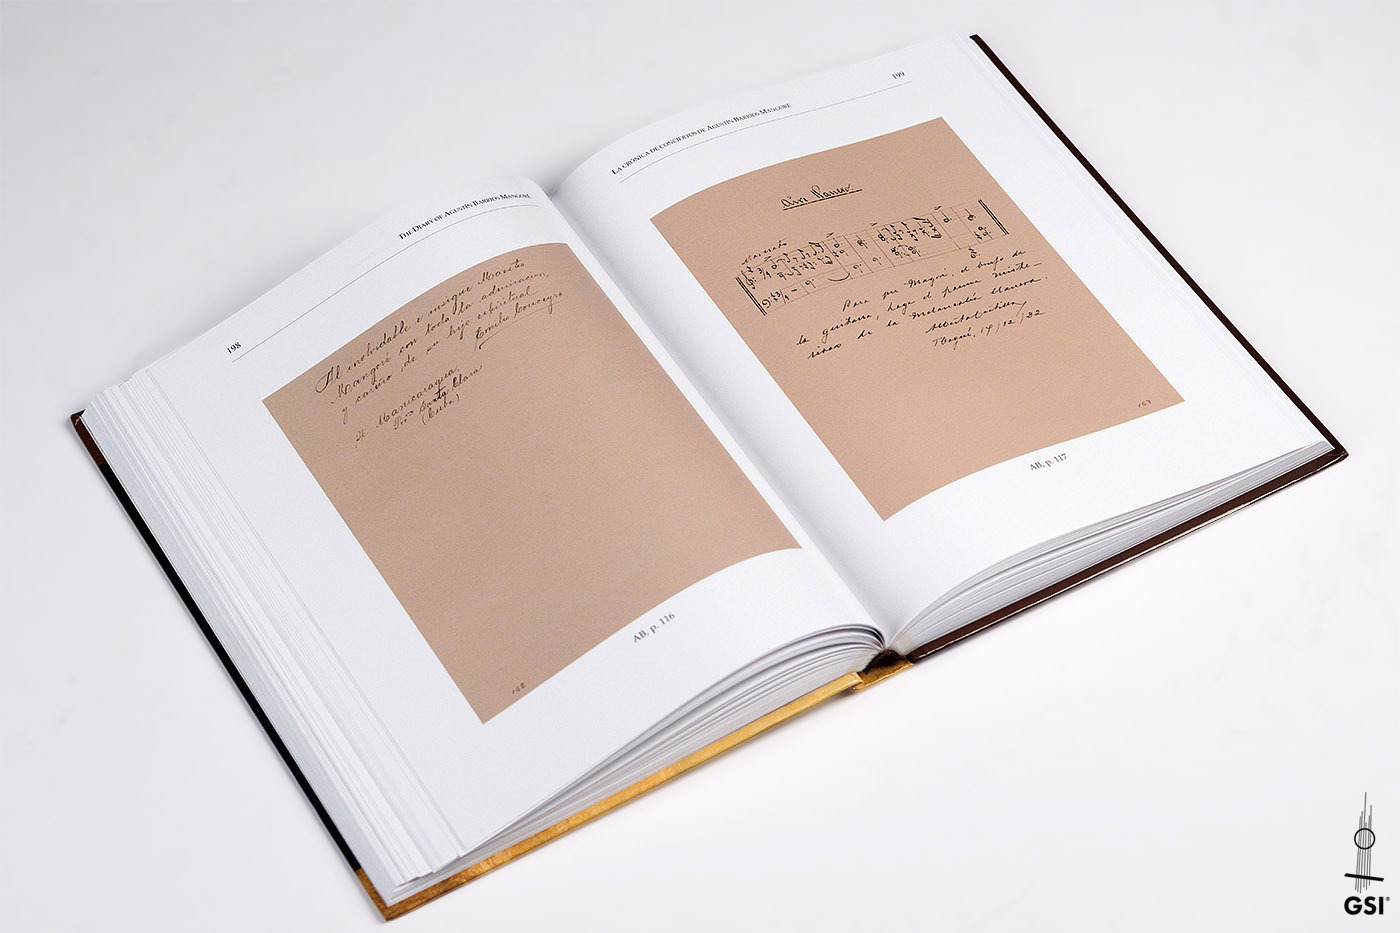 198
THE DIARY OF AGUSTÍN BARRIOS MANGORÉ
Al inolvidable e insigne Maestro
Mangoré con toda la admiración
y cariño de su hijo espiritual
Emilio
Manicaragua
Prov Santa Clara
(Cuba)
162
AB, p. 116
LA CRÓNICA DE CONCIERTOS DE AGUSTÍN BARRIOS MANGORÉ
199
Aire
Para que Mangoré, el brujo de
la guitarra, haga el poema
de la melancolía llanera.
Ibagué, 17/12/32
163
AB, p. 117
GSI